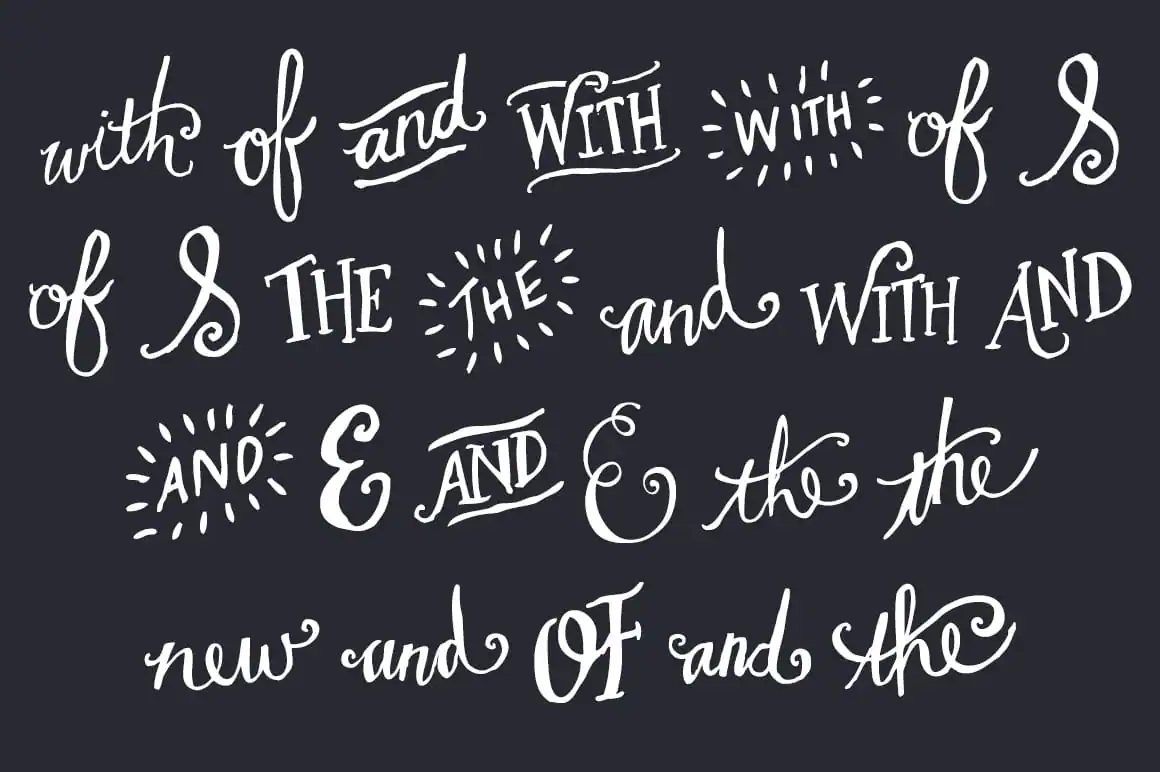 with of and WITH WITH of &
of & THE THE and WITH AND
AND & AND & the the
new and OF and the